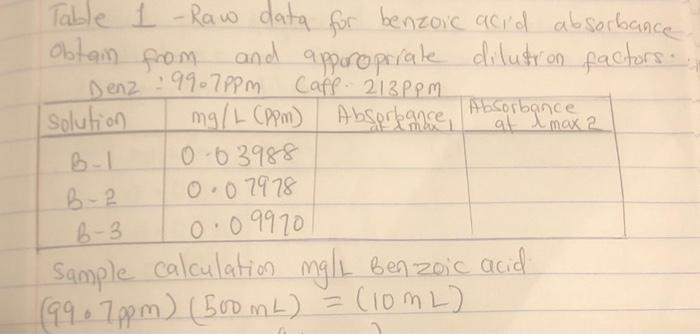 Table 1 - Raw data for benzoic acid absorbance
Obtain from and appororpriate dilution factors.
Denz : 99.7ppm Caff. 213ppm
Solution mg/L (ppm) Absorbance at λmax1 Absorbance at λmax2
B-1 0.03988
B-2 0.07978
B-3 0.09970
Sample calculation mg/L Benzoic acid
(99.7ppm) (500mL) = (10mL)